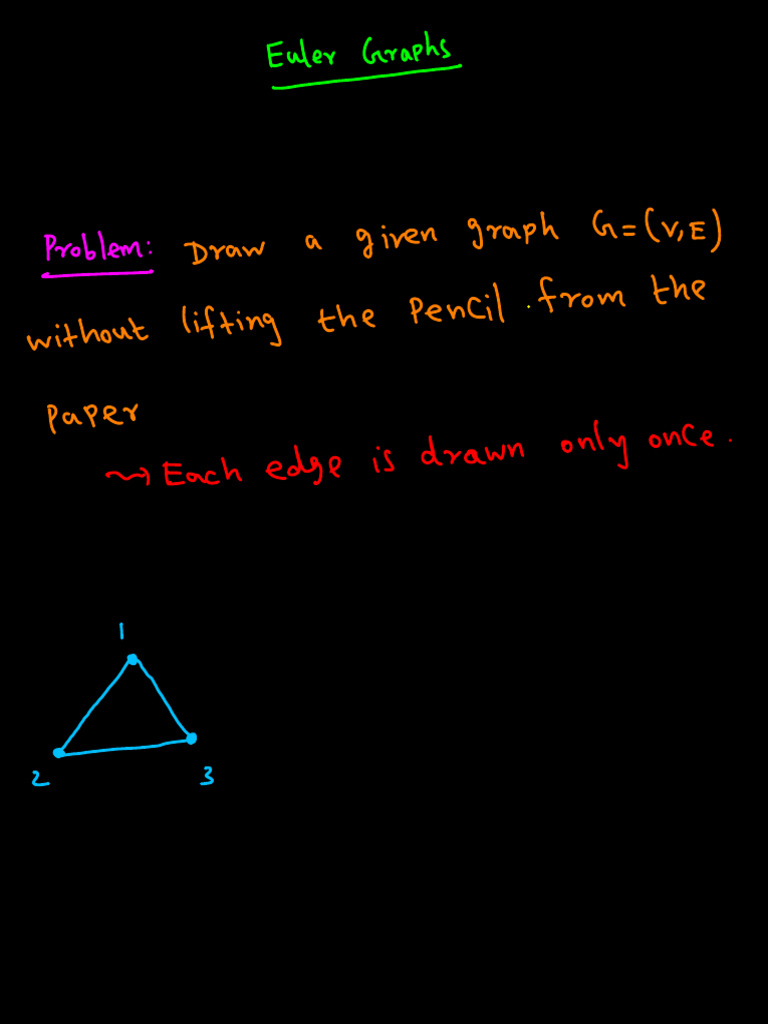 Euler Graphs
Problem: Draw a given graph G=(V,E)
without lifting the Pencil from the
paper
⇝ Each edge is drawn only once.
1
2 3